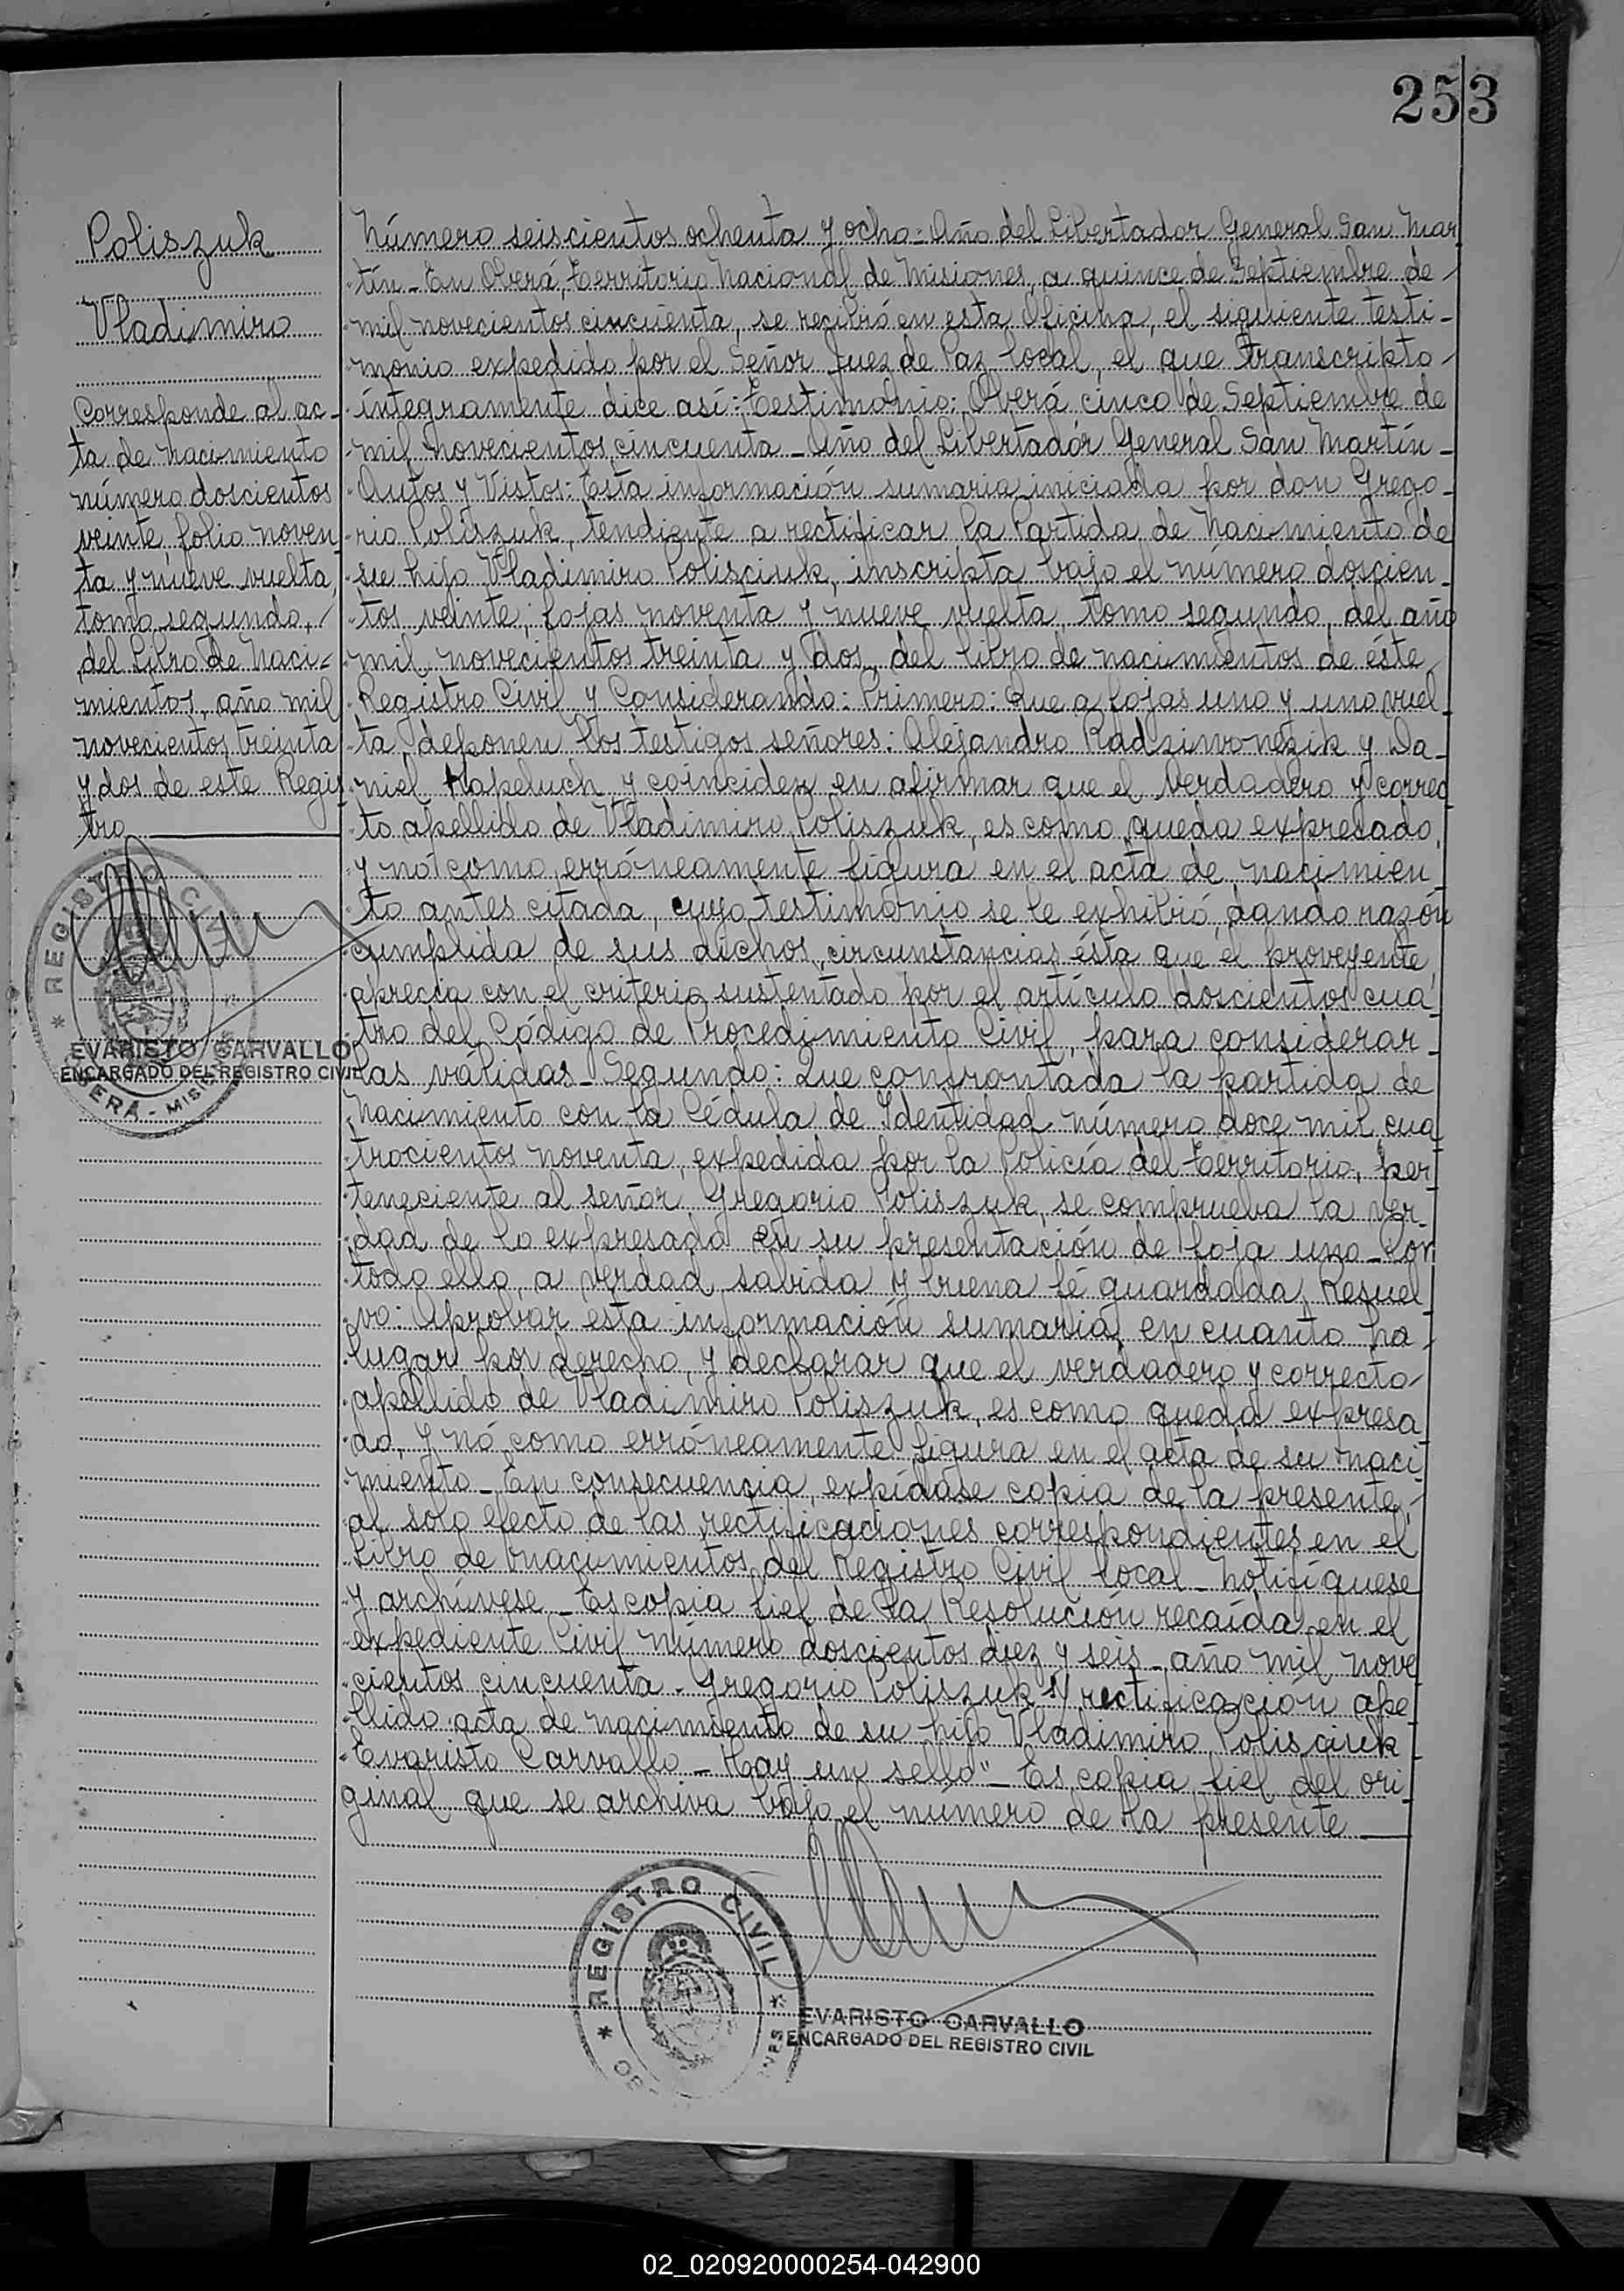 253
Poliszuk
Vladimiro
Corresponde al ac-
ta de nacimiento
número doscientos
veinte, folio noven-
ta y nueve vuelta,
tomo segundo,
del Libro de Naci-
mientos, año mil
novecientos treinta
y dos de este Regis
tro
REGISTRO CIVIL
OBERÁ - MISIONES
EVARISTO CARVALLO
ENCARGADO DEL REGISTRO CIVIL
Número seiscientos ochenta y ocho - Año del Libertador General San Mar
tín - En Oberá, Territorio Nacional de Misiones, a quince de Septiembre de
mil novecientos cincuenta, se recibió en esta Oficina, el siguiente testi-
monio expedido por el Señor Juez de Paz local, el que transcripto
íntegramente dice así: Testimonio: Oberá cinco de Septiembre de
mil novecientos cincuenta - Año del Libertador General San Martín -
Autos y Vistos: Esta información sumaria iniciada por don Grego-
rio Poliszuk, tendiente a rectificar la Partida de Nacimiento de
su hijo Vladimiro Polisciuk, inscripta bajo el número doscien-
tos veinte, fojas noventa y nueve vuelta, tomo segundo, del año
mil novecientos treinta y dos, del libro de nacimientos de éste
Registro Civil y Considerando: Primero: Que a fojas uno y uno vuel
ta, deponen los testigos señores: Alejandro Radziwonczik y Da-
niel Kapeluch y coinciden en afirmar que el verdadero y correc
to apellido de Vladimiro Poliszuk, es como queda expresado,
y nó como erróneamente figura en el acta de nacimien
to antes citada, cuyo testimonio se le exhibió, dando razón
cumplida de sus dichos, circunstancias ésta que el proveyente,
aprecia con el criterio sustentado por el artículo doscientos cua
tro del Código de Procedimiento Civil, para considerar-
las válidas - Segundo: Que confrontada la partida de
Nacimiento con la Cédula de Identidad número doce mil cua
trocientos noventa, expedida por la Policía del Territorio, per
teneciente al señor Gregorio Poliszuk, se comprueba la ver-
dad de lo expresado en su presentación de foja uno - Por
todo ello, a verdad sabida y buena fé guardada, Resuel-
vo: Aprobar esta información sumaria en cuanto ha
lugar por derecho, y declarar que el verdadero y correcto
apellido de Vladimiro Poliszuk, es como queda expresa
do, y nó como erróneamente figura en el acta de su naci
miento - En consecuencia, expídase copia de la presente,
al solo efecto de las rectificaciones correspondientes en el
Libro de nacimientos del Registro Civil local - Notifíquese
y archívese - Es copia fiel de la Resolución recaída en el
expediente Civil número doscientos diez y seis - año mil nove
cientos cincuenta - Gregorio Poliszuk s/ rectificación ape
llido acta de nacimiento de su hijo Vladimiro Polisciuk
Evaristo Carvallo - Hay un sello" - Es copia fiel del ori-
ginal que se archiva bajo el número de la presente
REGISTRO CIVIL
EVARISTO CARVALLO
ENCARGADO DEL REGISTRO CIVIL
02_020920000254-042900